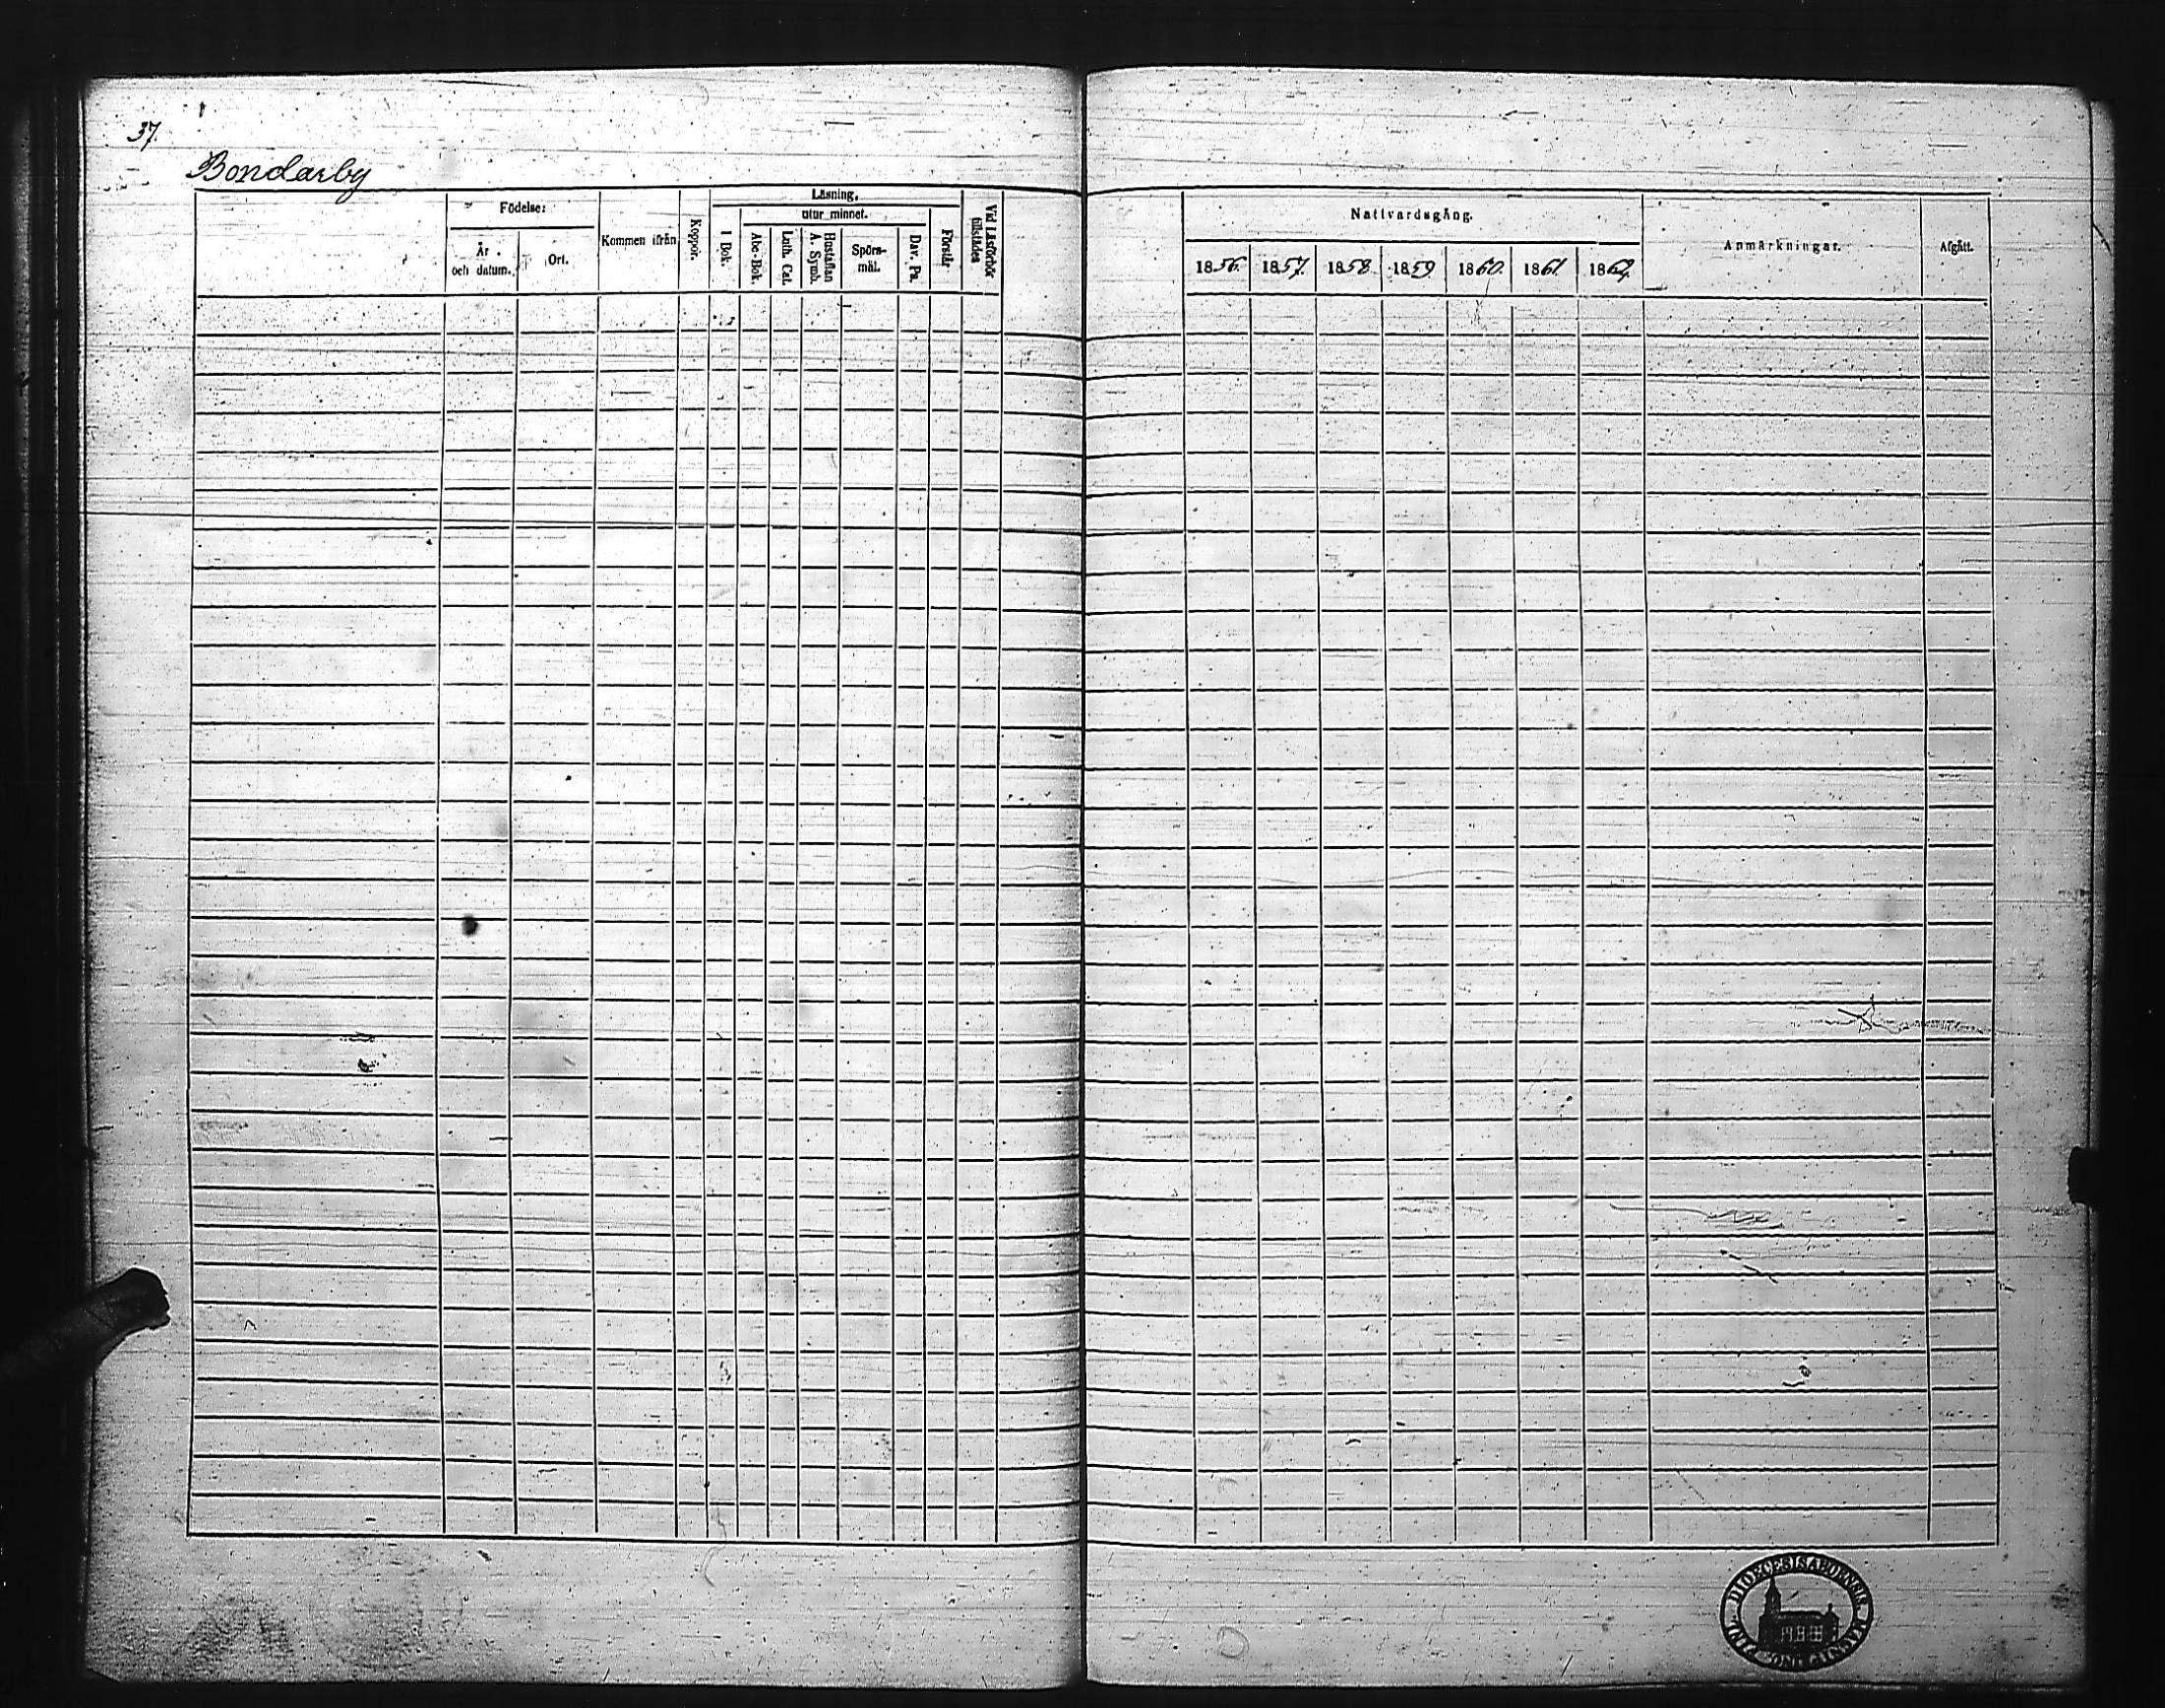 37.
Bondarby
Födelse:
År och datum.
Ort.
Kommen ifrån
Koppor.
Läsning.
utur minnet.
I Bok.
Abc-Bok.
Luth. Cat.
Hustaflan A. Symb.
Spörs-mål.
Dav. Ps.
Förstår
Vid Läsförhör tillstädes
Nattvardsgång.
1856. 1857. 1858. 1859 1860. 1861. 1862.
Anmärkningar.
Afgått.